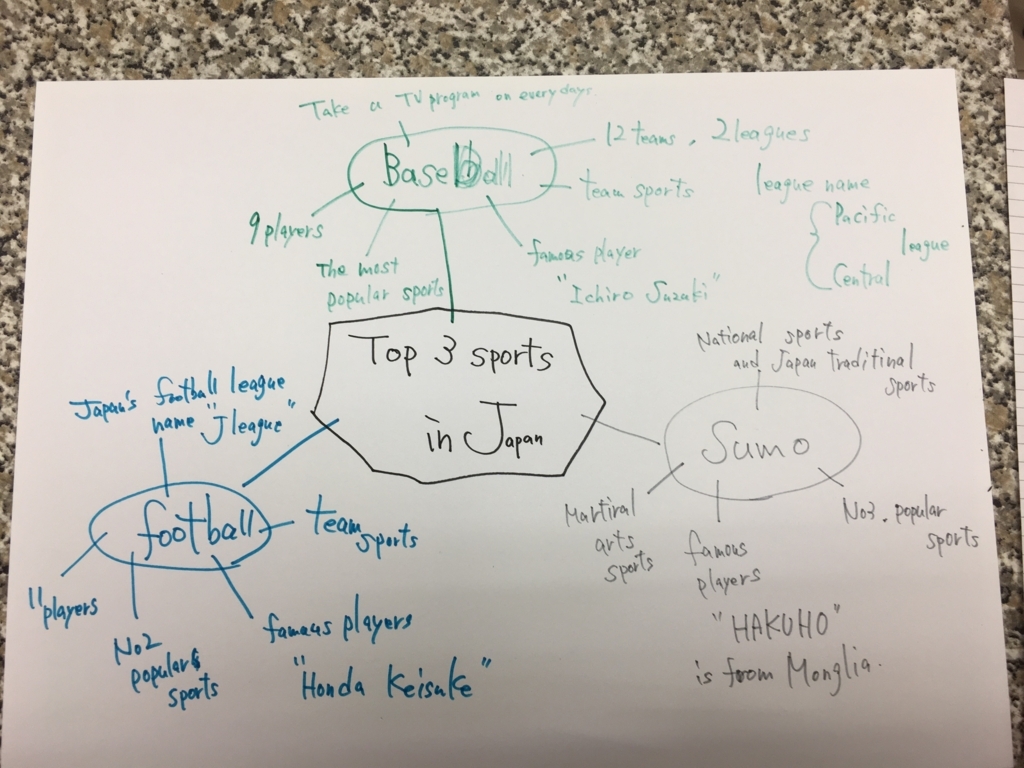 Take a TV program on everydays.
Baseball
12 teams, 2 leagues
team sports
league name
Pacific
Central
league
9 players
The most
popular sports
famous player
"Ichiro Suzuki"
Top 3 sports
in Japan
National sports
and Japan traditinal
sports
Sumo
Martiral
arts
sports
famous
players
"HAKUHO"
is from Monglia.
No3. popular
sports
Japan's football league
name "J league"
football
team
sports
11 players
No2
popular
sports
famous players
"Honda Keisuke"